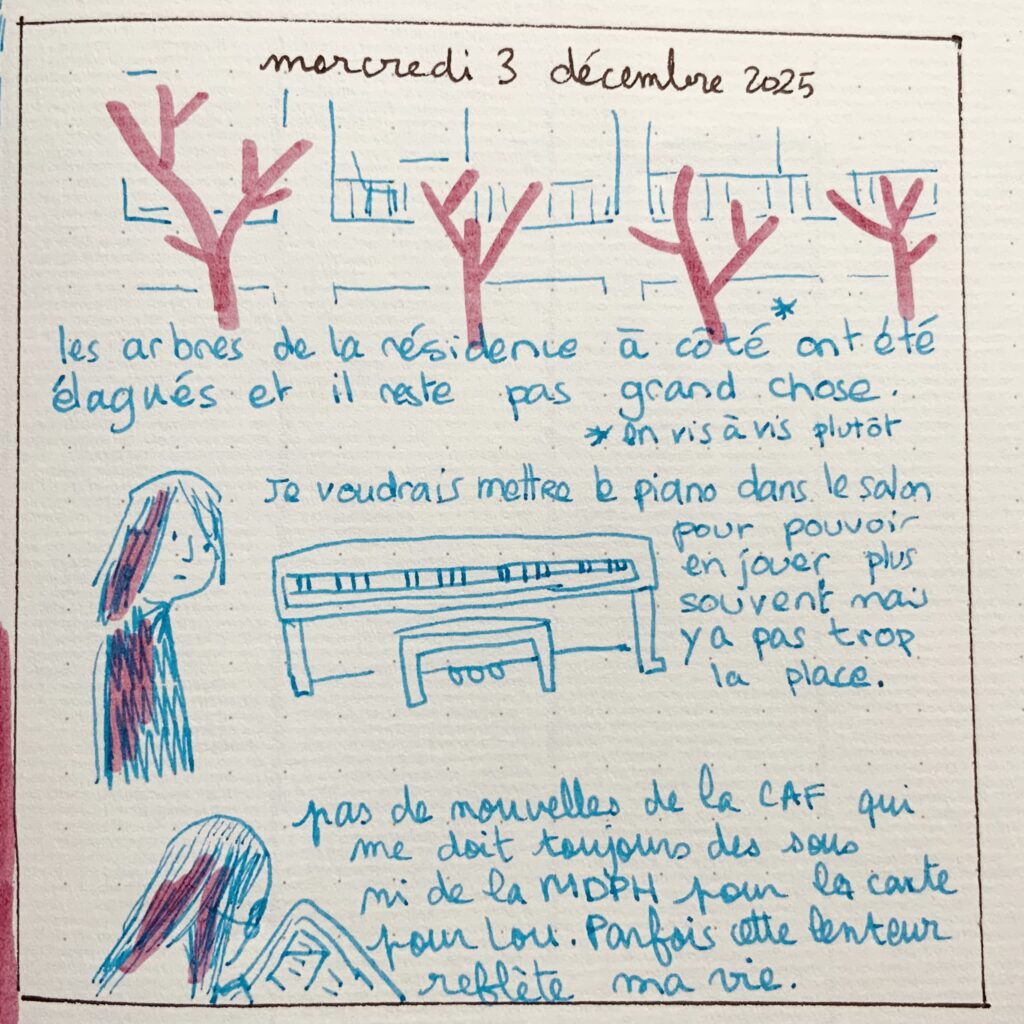 mercredi 3 décembre 2025
les arbres de la résidence à côté* ont été
élagués et il reste pas grand chose.
* en vis à vis plutôt
Je voudrais mettre le piano dans le salon
pour pouvoir
en jouer plus
souvent mais
y a pas trop
la place.
pas de nouvelles de la CAF qui
me doit toujours des sous
ni de la MDPH pour la carte
pour Lou. Parfois cette lenteur
reflète ma vie.